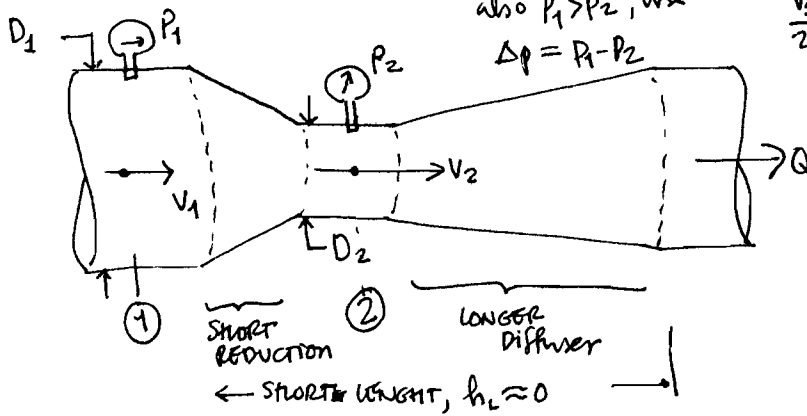 also P₁>P₂, use
Δp = P₁-P₂
D₁
P₁
P₂
V₁
V₂
Q
D₂
①
②
SHORT
REDUCTION
LONGER
Diffuser
← SHORT LENGHT, hL ≈ 0 →